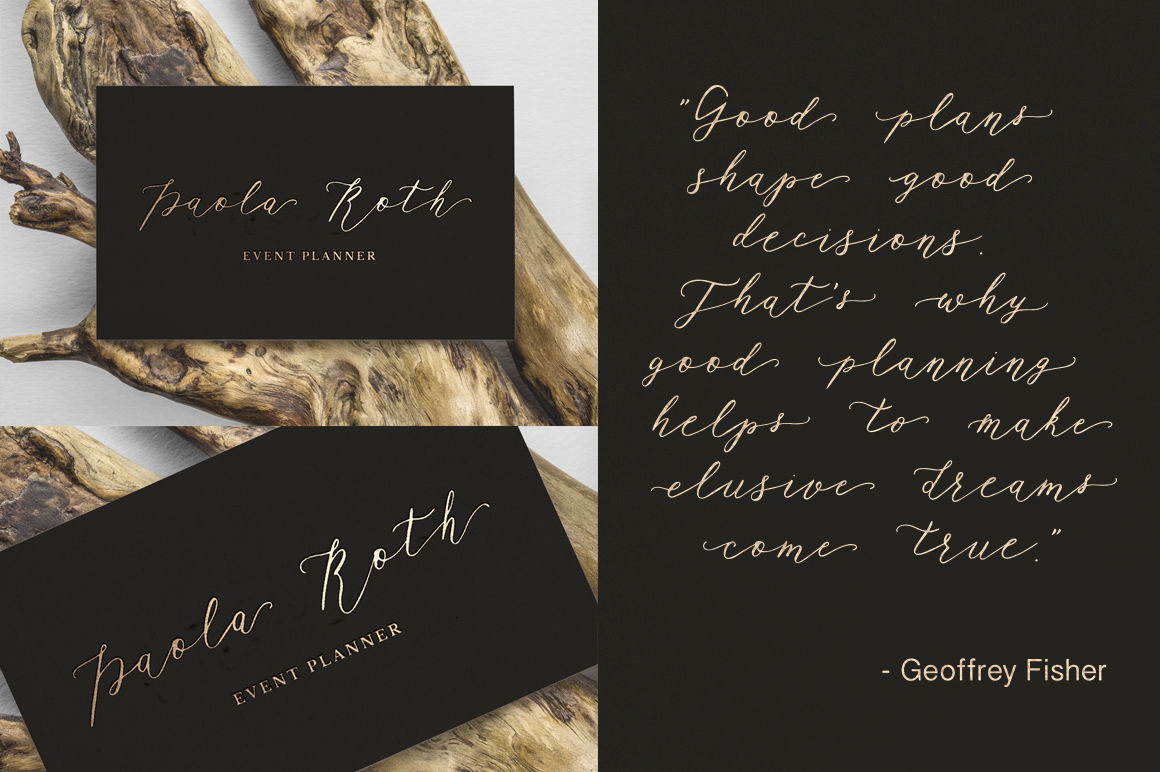 Paola Roth
EVENT PLANNER
Paola Roth
EVENT PLANNER
"Good plans
shape good
decisions.
That's why
good planning
helps to make
elusive dreams
come true."
- Geoffrey Fisher